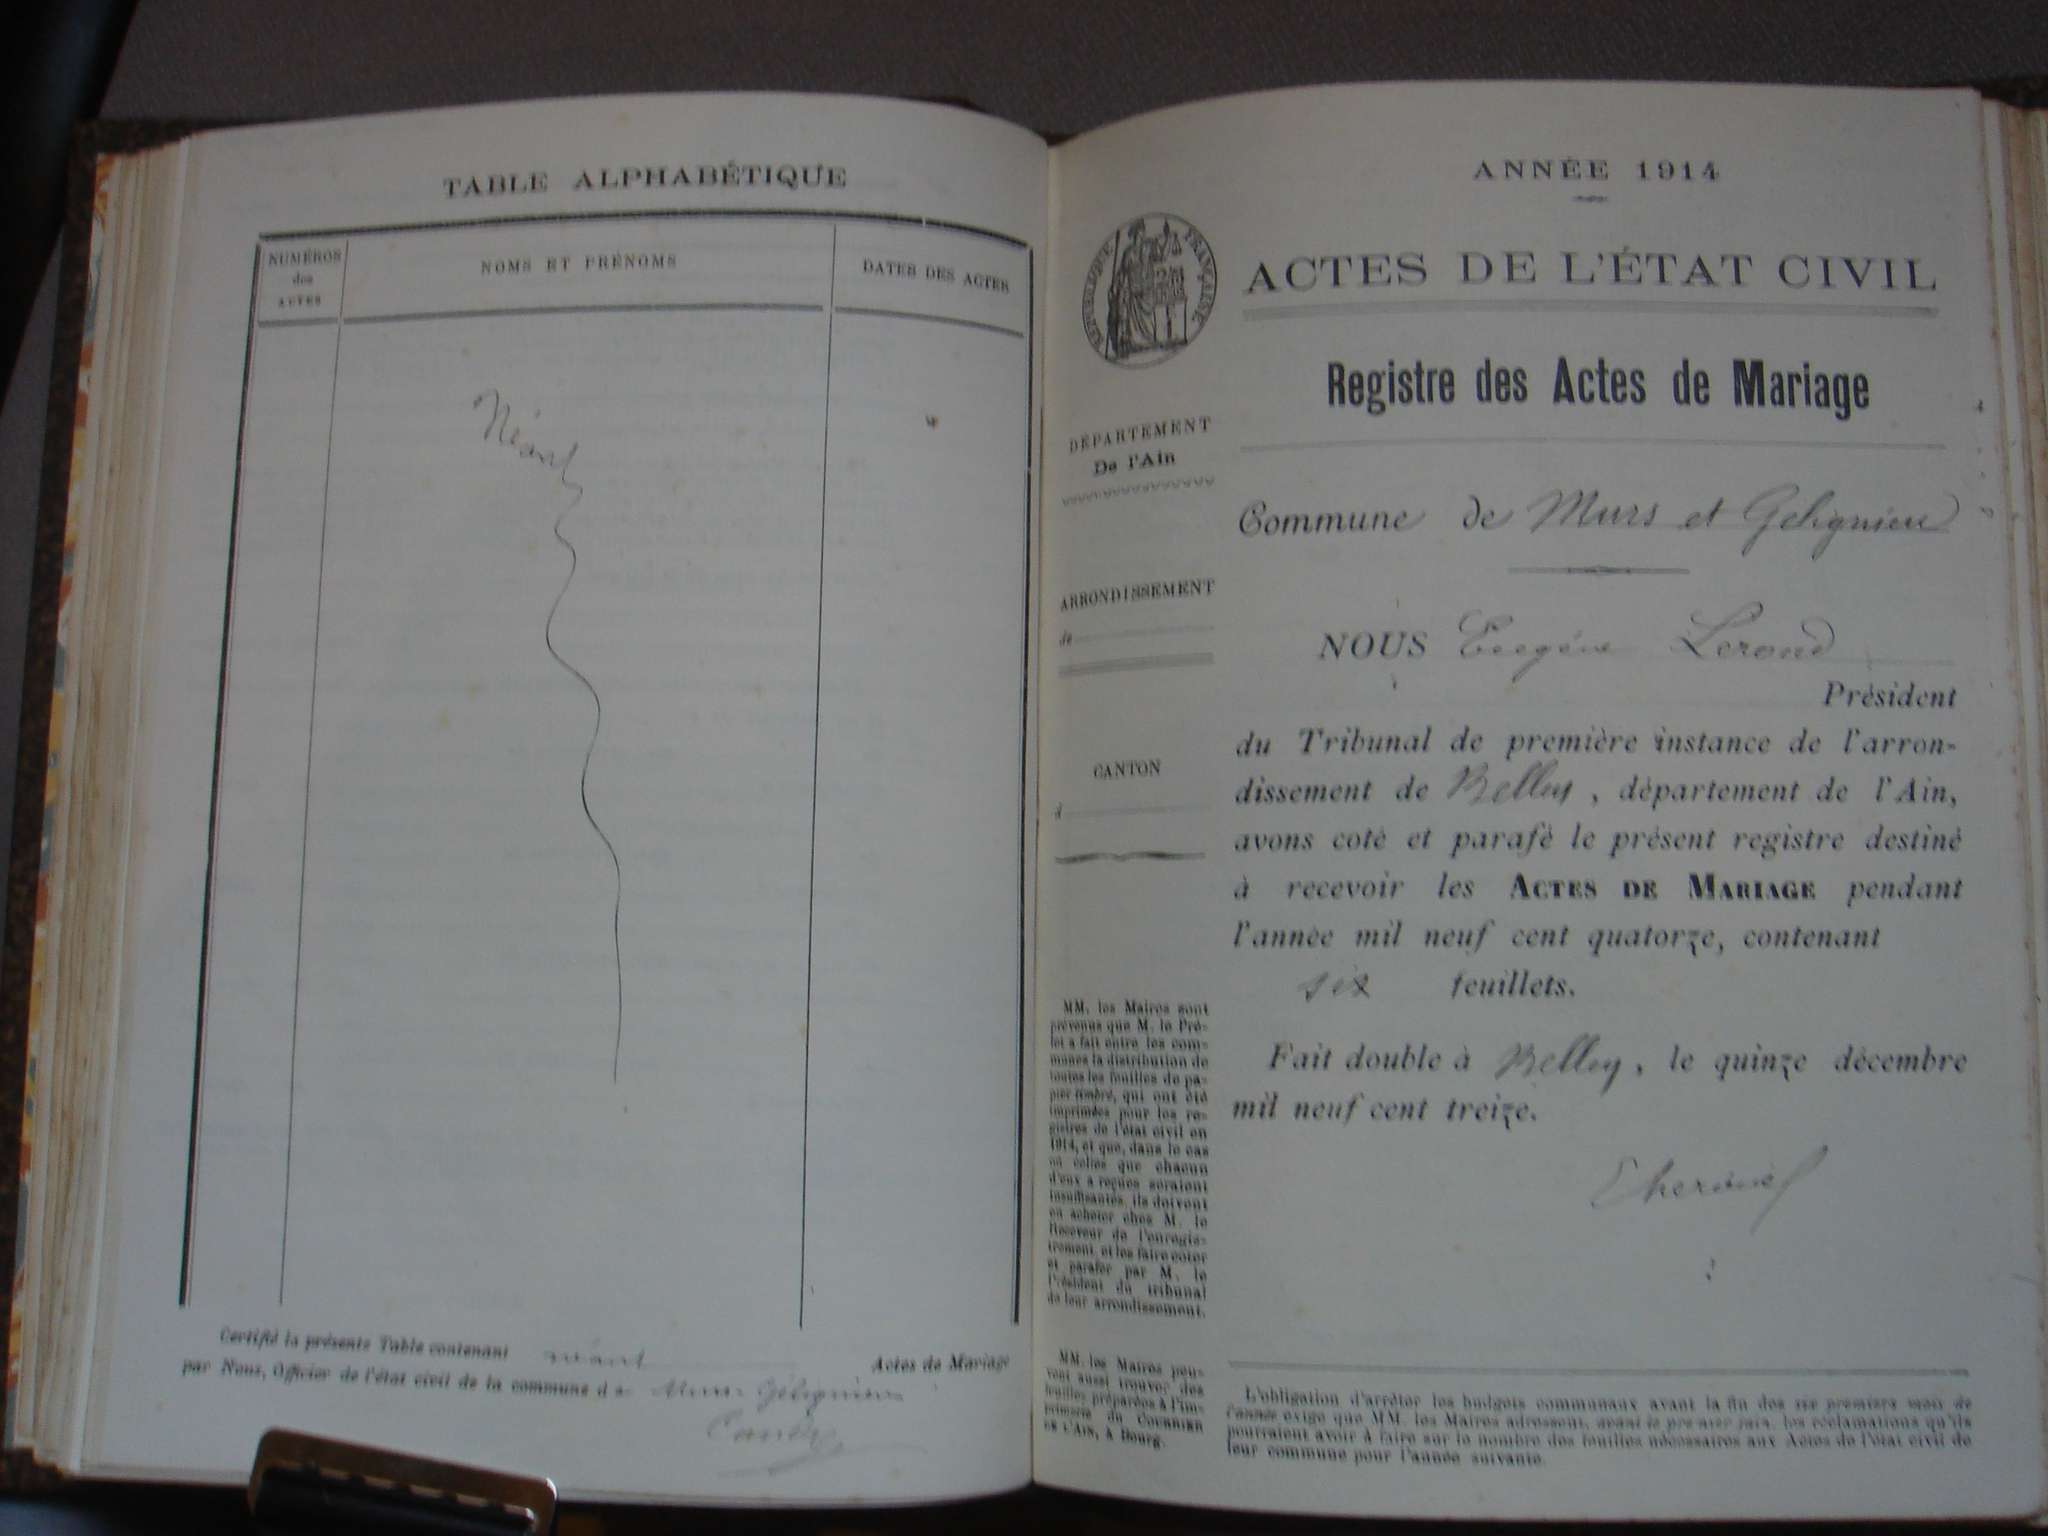 TABLE ALPHABÉTIQUE
NUMÉROS
des
ACTES
NOMS ET PRÉNOMS
DATES DES ACTES
Néant
Certifié la présente Table contenant néant Actes de Mariage
par Nous, Officier de l'état civil de la commune de Murs Gélignieu
ANNÉE 1914
RÉPUBLIQUE FRANÇAISE
ACTES DE L'ÉTAT CIVIL
Registre des Actes de Mariage
DÉPARTEMENT
De l'Ain
ARRONDISSEMENT
de
CANTON
d
MM. les Maires sont
prévenus que M. le Pré-
fet a fait entre les com-
munes la distribution de
toutes les feuilles de pa-
pier timbré, qui ont été
imprimées pour les re-
gistres de l'état civil en
1914, et que, dans le cas
où celles que chacun
d'eux a reçues seraient
insuffisantes, ils doivent
en acheter chez M. le
Receveur de l'enregis-
trement, et les faire coter
et parafer par M. le
Président du tribunal
de leur arrondissement.
MM. les Maires peu-
vent aussi trouver des
feuilles préparées à l'im-
primerie du COURRIER
DE L'AIN, à Bourg.
Commune de Murs et Gélignieu
NOUS Eugène
Président
du Tribunal de première instance de l'arron-
dissement de Belley, département de l'Ain,
avons coté et parafé le présent registre destiné
à recevoir les ACTES DE MARIAGE pendant
l'année mil neuf cent quatorze, contenant
six feuillets.
Fait double à Belley, le quinze décembre
mil neuf cent treize.
L'obligation d'arrêter les budgets communaux avant la fin des six premiers mois de
l'année exige que MM. les Maires adressent, avant le premier juin, les réclamations qu'ils
pourraient avoir à faire sur le nombre des feuilles nécessaires aux Actes de l'état civil de
leur commune pour l'année suivante.